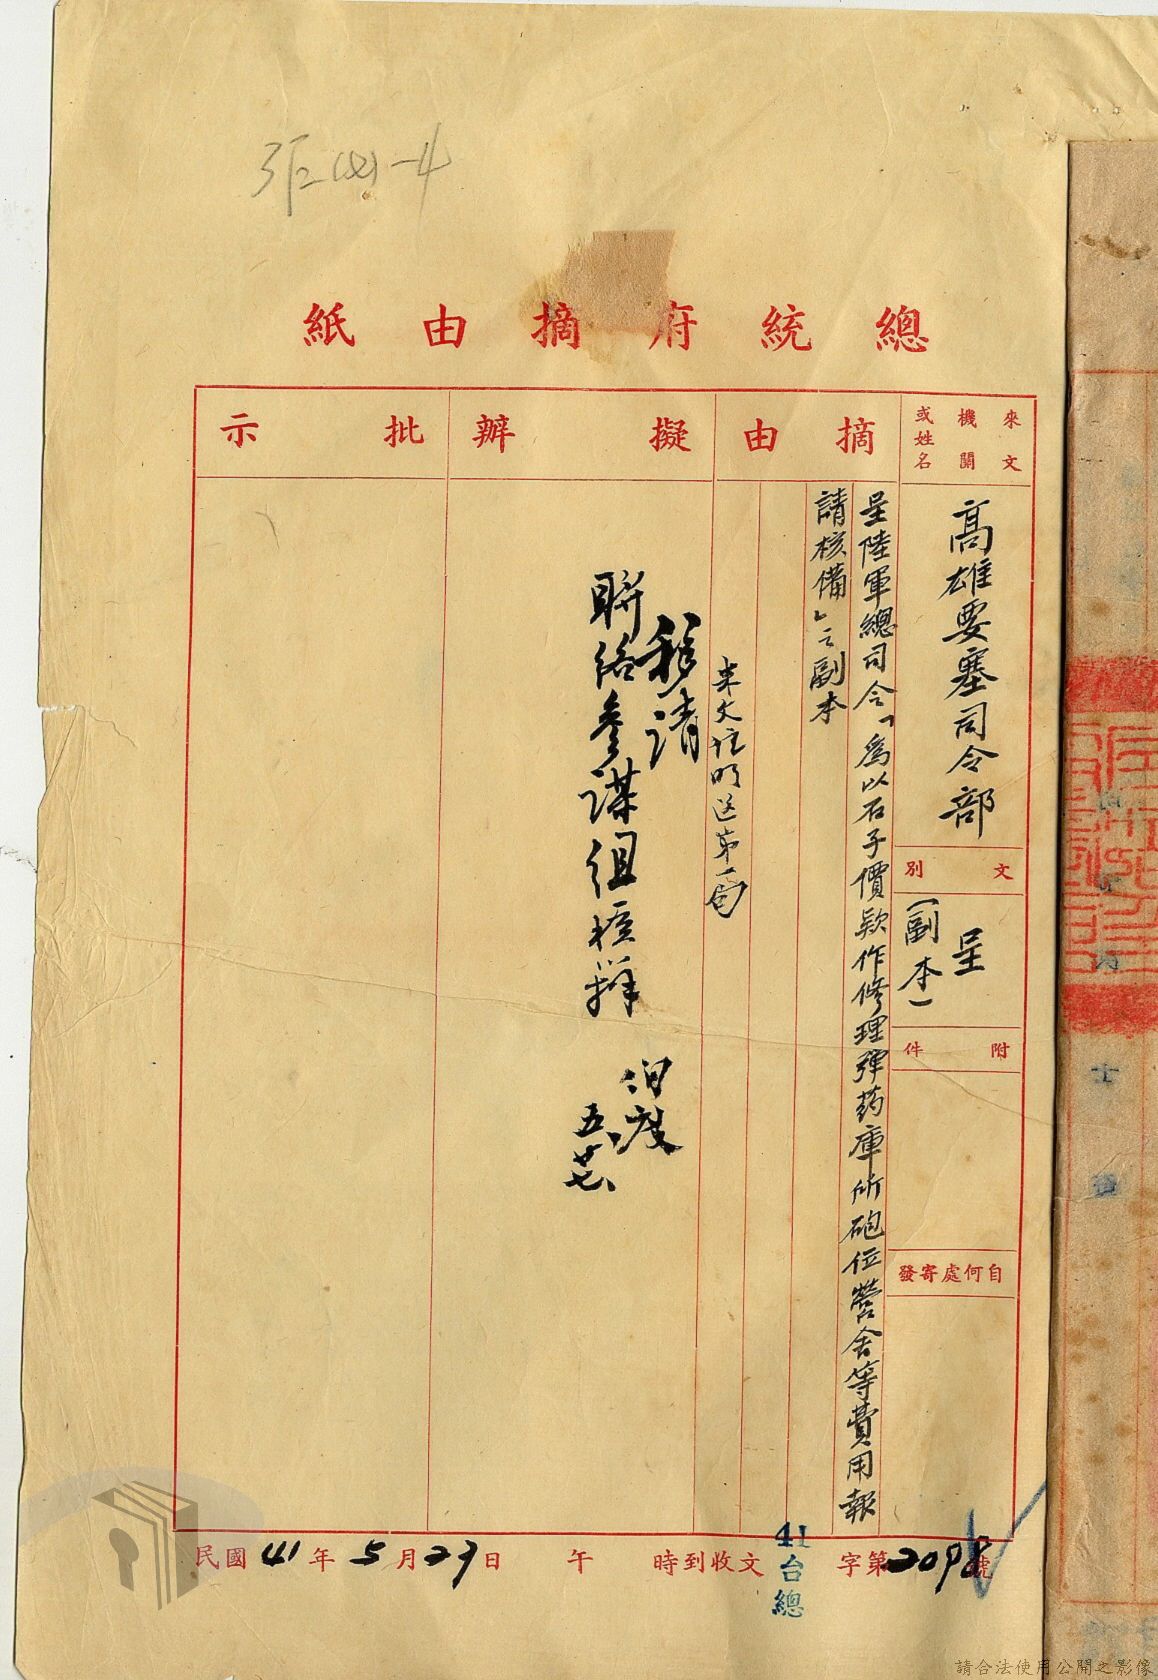 總統府摘由紙
來文機關或姓名
高雄要塞司令部
文別
呈
(副本)
附件
自何處寄發
摘由
呈陸軍總司令「為以石子價款作修理彈药庫所砲位營舍等費用報
請核備」之副本
來文注明送第一局
擬辦
移請
聯絡參謀組
五、廿七、
批示
民國41年5月27日 午 時到收文 41台總字第2098號
請合法使用公開之影像